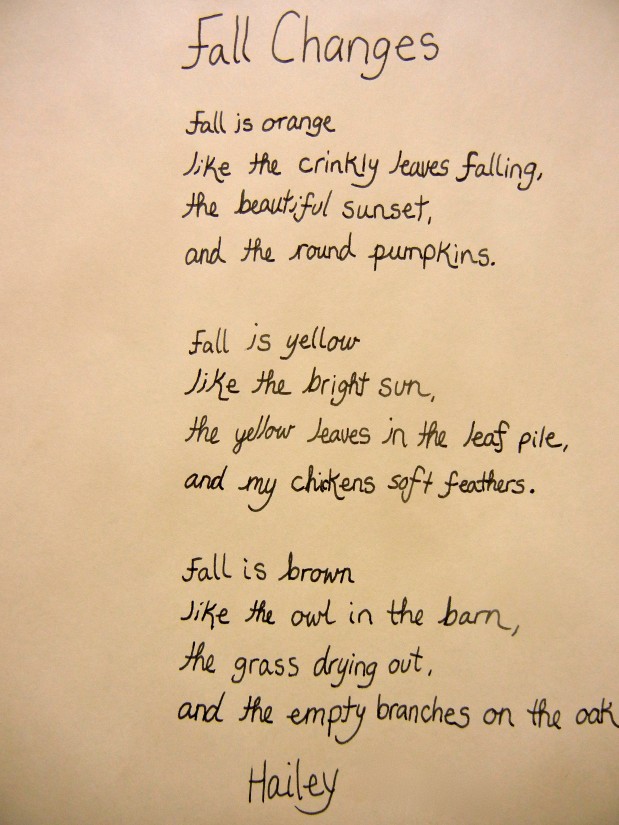 Fall Changes
Fall is orange
like the crinkly leaves falling,
the beautiful sunset,
and the round pumpkins.
Fall is yellow
like the bright sun,
the yellow leaves in the leaf pile,
and my chickens soft feathers.
Fall is brown
like the owl in the barn,
the grass drying out,
and the empty branches on the oak
Hailey